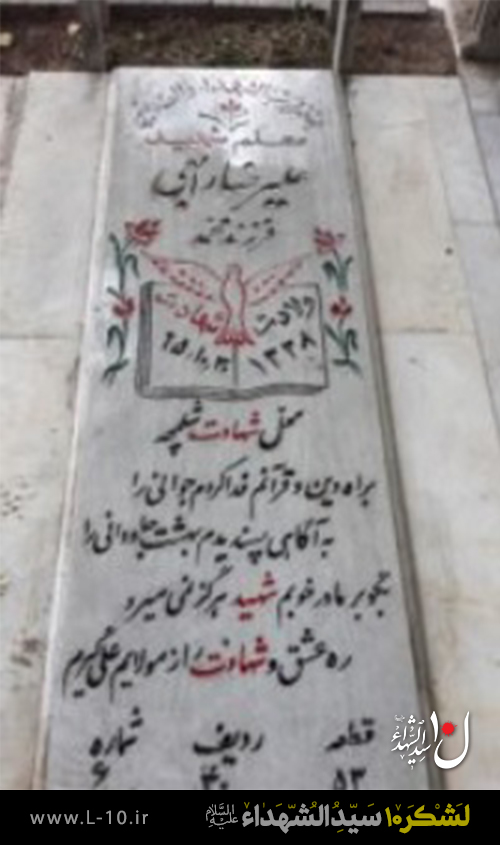 معلم شهید
علیرضا
فرزند محمد
ولادت
۱۳۳۸
شهادت
محل شهادت شلمچه
براه دین و قرآنم فدا کردم جوانی را
به آگاهی پسندیدم بهشت جاودانی را
بگو بر مادر خوبم شهید هرگز نمی میرد
ره عشق و شهادت را از مولایم علی گیرم
قطعه ردیف شماره
۵۳ ۴۰ ۶
لشکر۱۰ سیدالشهداء علیه السلام
www.L-10.ir